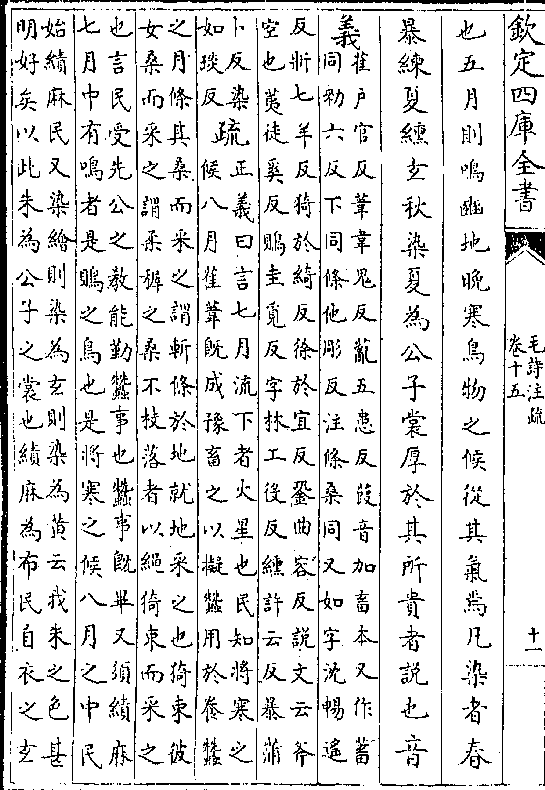 欽定四庫全書
毛詩注疏
卷十五
十一
也五月則鳴豳地晚寒鳥物之候從其氣焉凡染者春
暴練夏纁玄秋染夏為公子裳厚於其所貴者說也音
義
萑户官反葦韋鬼反薍五患反葭音加畜本又作蓄
同勑六反下同條他彫反注條桑同又如字沈暢遥
反斨七羊反猗於綺反徐於宜反銎曲容反說文云斧
空也荑徒奚反鵙圭覓反字林工後反纁許云反暴蒲
卜反染
如琰反
疏
正義曰言七月流下者火星也民知將寒之
候八月萑葦既成豫畜之以擬蠶用於養蠶
之月條其桑而采之謂斬條於地就地采之也猗束彼
女桑而采之謂柔穉之桑不枝落者以繩猗束而采之
也言民受先公之教能勤蠶事也蠶事既畢又須績麻
七月中有鳴者是鵙之鳥也是將寒之候八月之中民
始績麻民又染繒則染為玄則染為黃云我朱之色甚
明好矣以此朱為公子之裳也績麻為布民自衣之玄